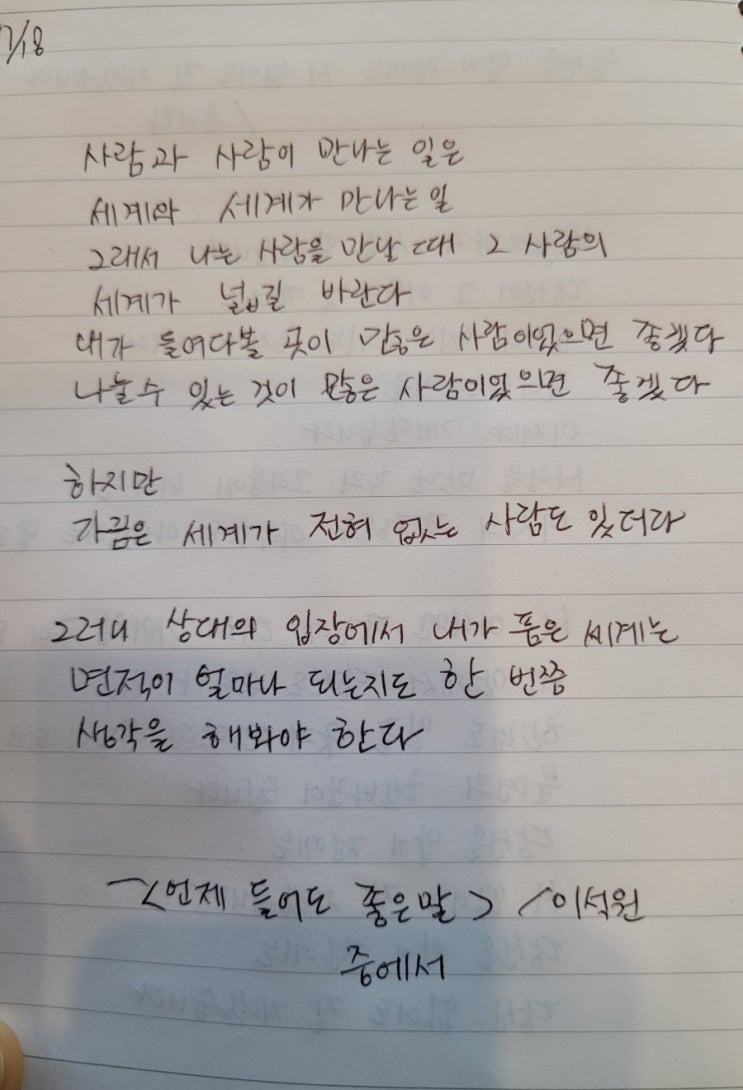 7/18
사람과 사람이 만나는 일은
세계와 세계가 만나는 일
그래서 나는 사람을 만날 때 그 사람의
세계가 넓길 바란다
내가 들여다볼 곳이 많은 사람이었으면 좋겠다
나눌수 있는 것이 많은 사람이었으면 좋겠다
하지만
가끔은 세계가 전혀 없는 사람도 있더라
그러니 상대의 입장에서 내가 품은 세계는
면적이 얼마나 되는지도 한 번쯤
생각을 해봐야 한다
<언제 들어도 좋은말> / 이석원
중에서